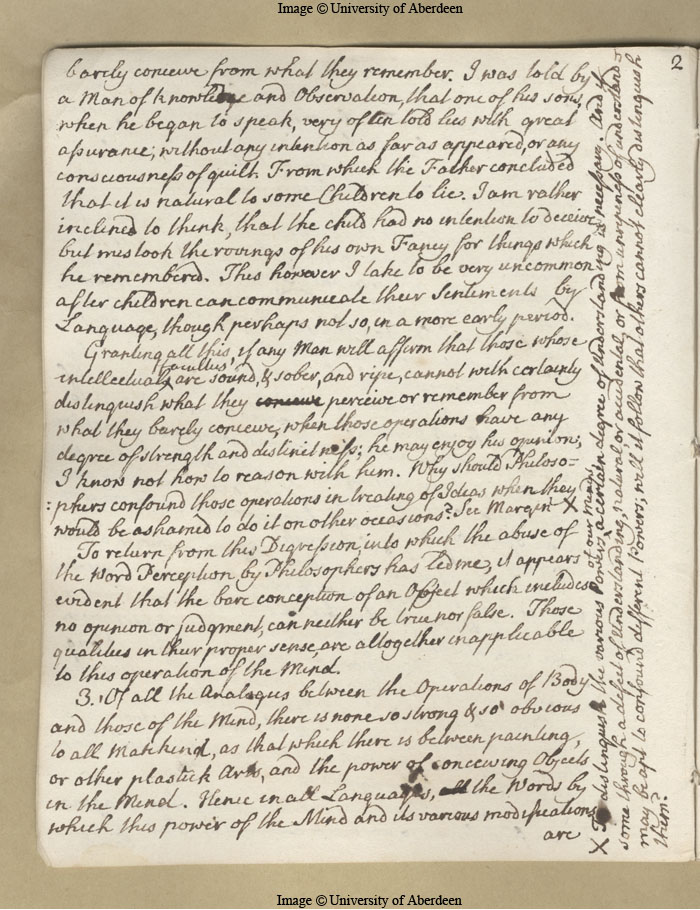 Image © University of Aberdeen
2
barely conceive from what they remember. I was told by
a Man of knowledge and Observation, that one of his sons,
when he began to speak, very often told lies with great
assurance, without any intention as far as appeared, or any
consciousness of guilt. From which the Father concluded
that it is natural to some Children to lie. I am rather
inclined to think, that the child had no intention to deceive
but mistook the rovings of his own Fancy for things which
he remembered. This however I take to be very uncommon
after children can communicate their Sentiments by
Language, though perhaps not so, in a more early period.
Granting all this, if any Man will affirm that those whose
intellectual Facultys are sound, & sober, and ripe, cannot with certainty
distinguish what they conceive perceive or remember from
what they barely conceive, when those operations have any
degree of strength and distinctness; he may enjoy his opinion;
I know not how to reason with him. Why should Philoso=
:phers confound those operations in treating of Ideas when they
would be ashamed to do it on other occasions? See Margin X
To return from this Digression, into which the abuse of
the Word Perception by Philosophers has led me, it appears
evident that the bare conception of an Object which includes
no opinion or judgment, can neither be true nor false. Those
qualities in their proper sense, are altogether inapplicable
to this operation of the Mind.
3. Of all the Analogies between the Operations of Body
and those of the Mind, there is none so strong & so obvious
to all Mankind, as that which there is between painting,
or other plastick Arts, and the power of conceiving Objects
in the Mind. Hence in all Languages, the Words by
which this power of the Mind and its various modifications
are
X To distinguish the various Powers of our minds a certain degree of Understanding is necessary. And if
some through a defect of Understanding, natural or accidental, or from unripeness of understand
may be apt to confound different Powers, will it follow that others cannot clearly distinguish
them?
Image © University of Aberdeen